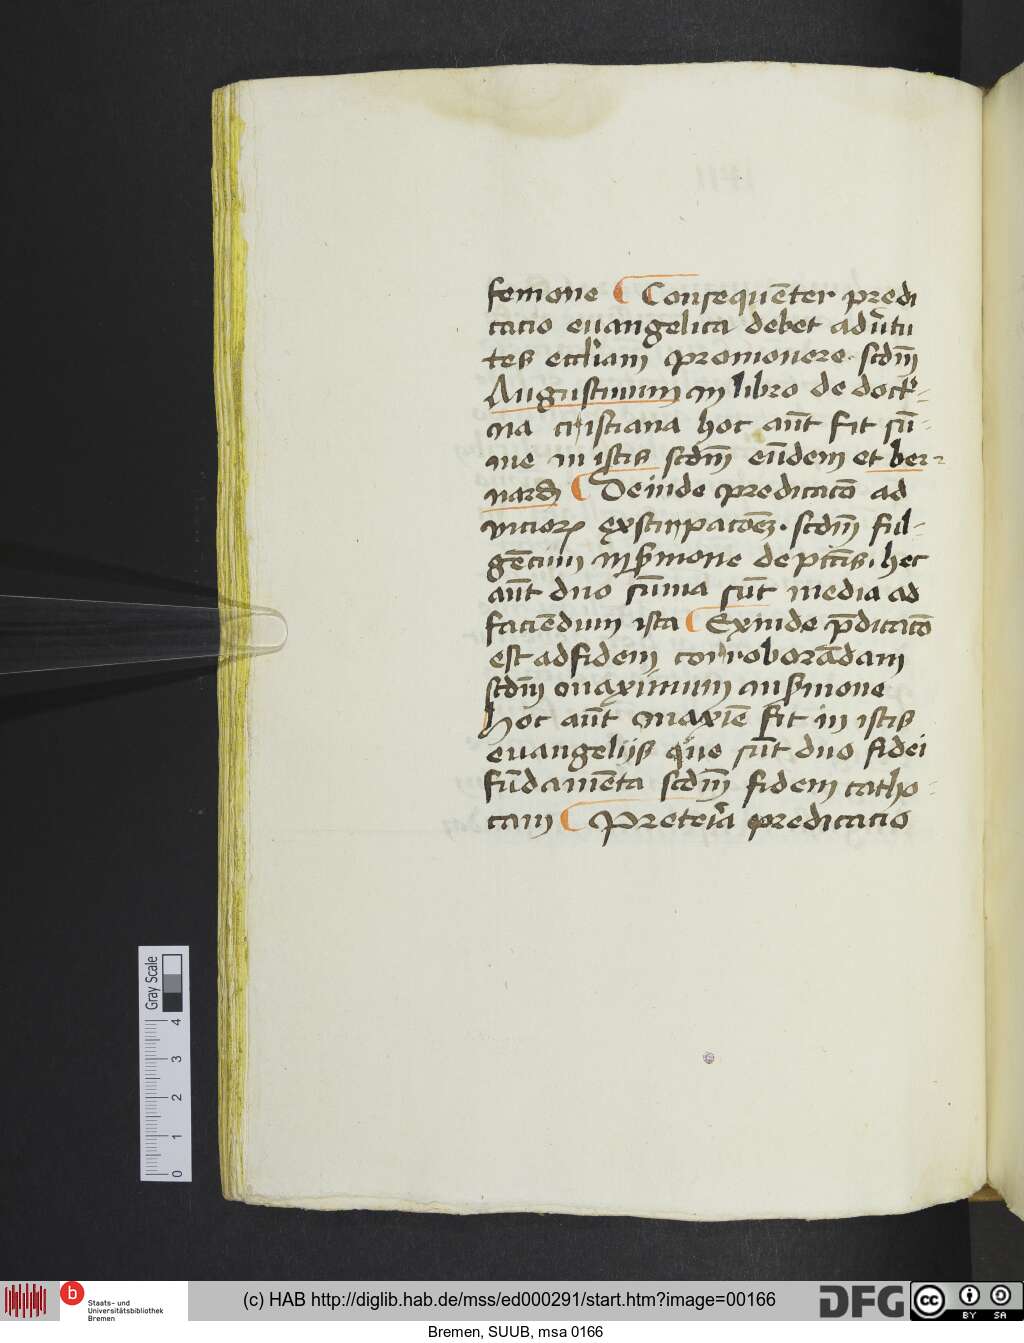 semone Consequēter predi
catio euangelica debet ad v̓tu
tes eccl̓iam promouere · scdm̄
Augustinum in libro de doctr̓-
na cristiana hoc aūt fit sū-
me in istis scdm̄ eūdem et ber-
nardū Deinde predicacō ad
vicioꝝ exstirpacōeꝫ · scdm̄ ful-
gēcium in s̄mone de pcc̄is · hec
aūt duo sūma sūt media ad
faciēdum ista Exinde p̄dicacō
est ad fidem corroborādam
scdm̄ maximum in s̄mone
hoc aūt maxīe fit in istis
euangelijs que sūt duo fidei
fūdamēta scdm̄ fidem catho-
cam Preter̄a predicatio
Gray Scale
4
3
2
1
0
b
Staats- und
Universitätsbibliothek
Bremen
(c) HAB http://diglib.hab.de/mss/ed000291/start.htm?image=00166
DFG
cc
BY SA
Bremen, SUUB, msa 0166